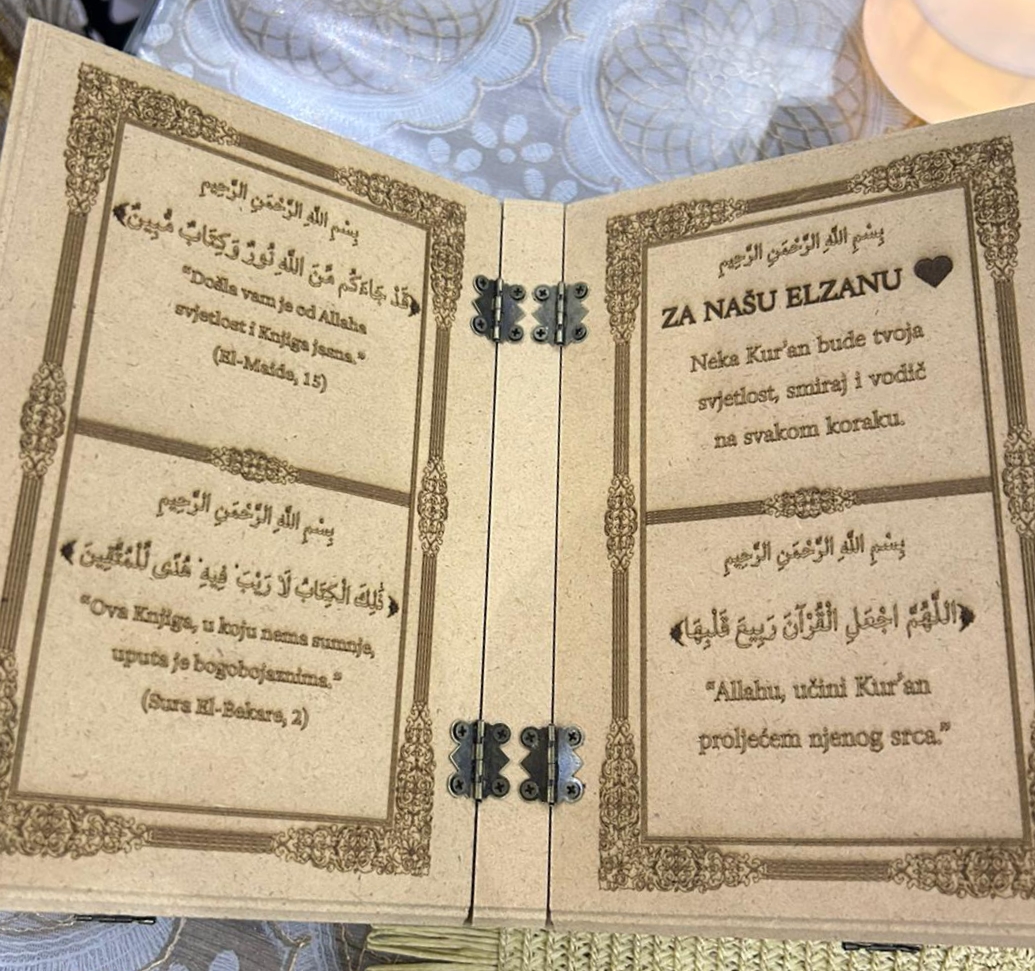 بِسْمِ اللَّهِ الرَّحْمَنِ الرَّحِيمِ
﴿قَدْ جَاءَكُم مِّنَ اللَّهِ نُورٌ وَكِتَابٌ مُّبِينٌ﴾
“Došla vam je od Allaha
svjetlost i Knjiga jasna.”
(El-Maide, 15)
بِسْمِ اللَّهِ الرَّحْمَنِ الرَّحِيمِ
﴿ذَٰلِكَ الْكِتَابُ لَا رَيْبَ ۛ فِيهِ ۛ هُدًى لِّلْمُتَّقِينَ﴾
“Ova Knjiga, u koju nema sumnje,
uputa je bogobojaznima.”
(Sura El-Bekare, 2)
بِسْمِ اللَّهِ الرَّحْمَنِ الرَّحِيمِ
ZA NAŠU ELZANU ♥
Neka Kur’an bude tvoja
svjetlost, smiraj i vodič
na svakom koraku.
بِسْمِ اللَّهِ الرَّحْمَنِ الرَّحِيمِ
﴿اللَّهُمَّ اجْعَلِ الْقُرْآنَ رَبِيعَ قَلْبِهَا﴾
“Allahu, učini Kur’an
proljećem njenog srca.”